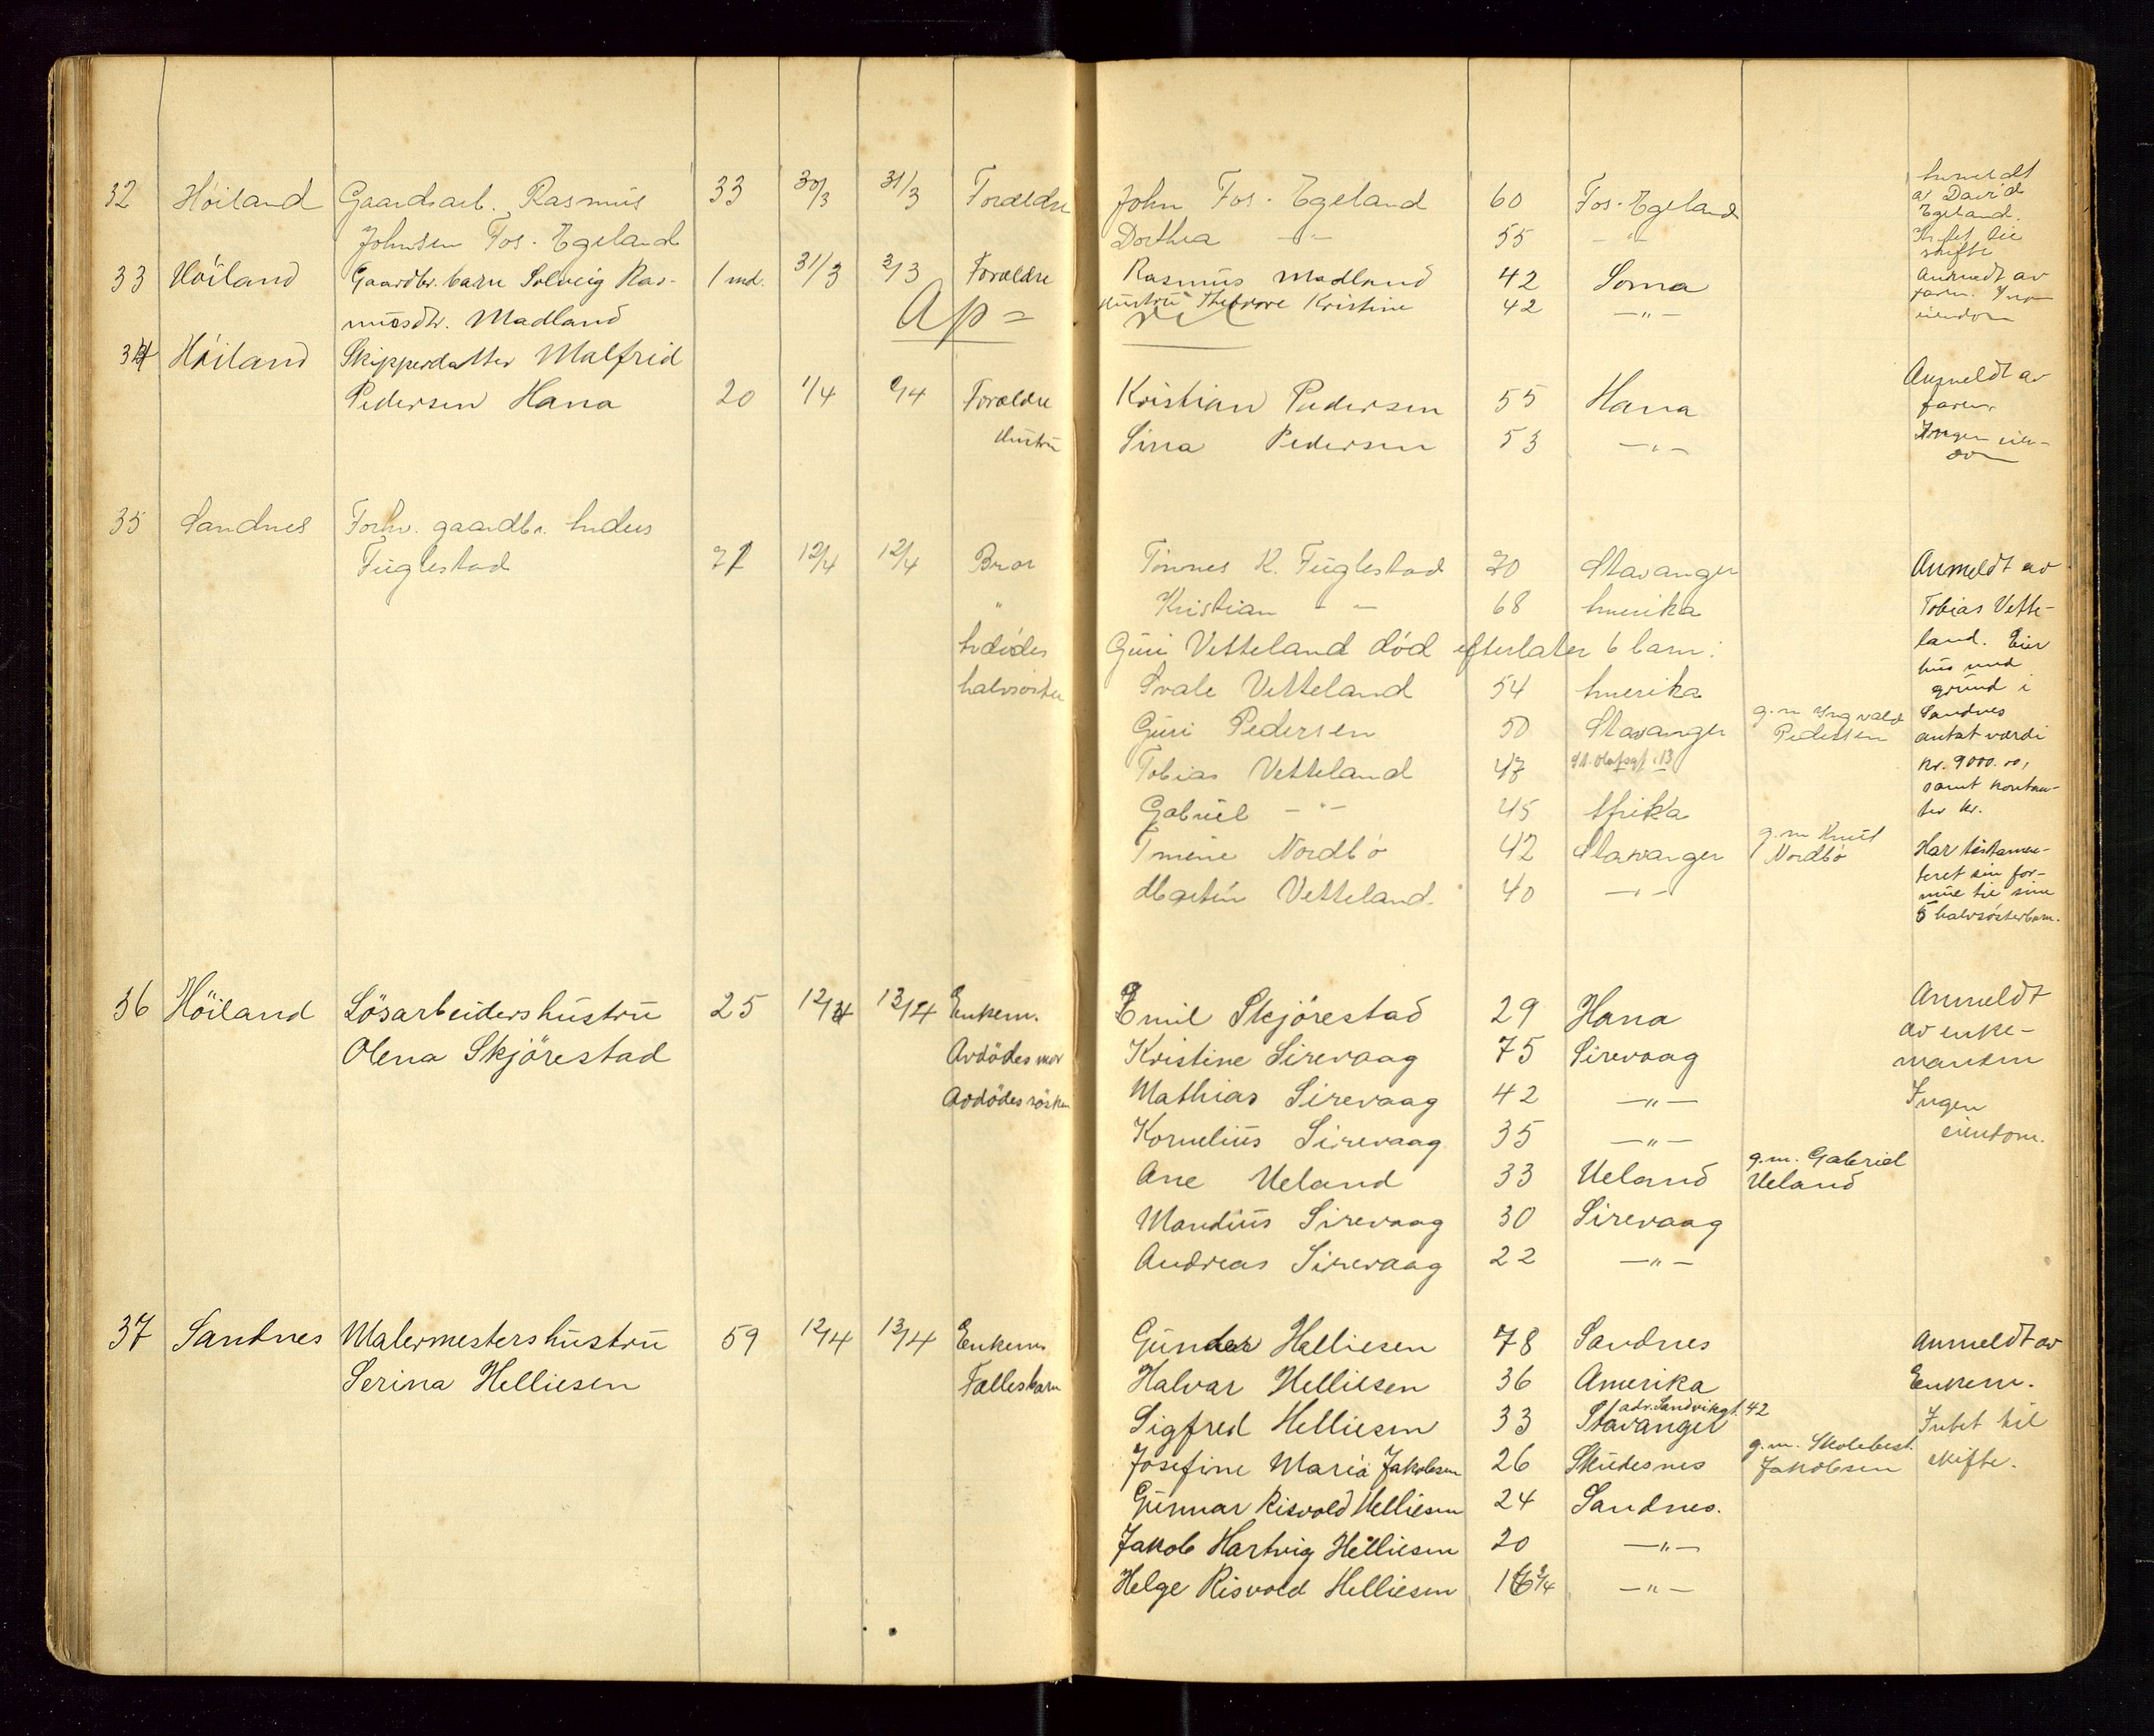 32 Höiland Gaardsarb. Rasmus 33 30/3 31/3 Foreldre John Fos-Egeland 60 Fos-Egeland Anmeldt
av David
Egeland.
Johnsen Fos-Egeland Dorthea -"- 55 -"- Intet til
skifte
33 Höiland Gaardbr. barn Solveig Ras- 1 md. 31/3 Foreldre Rasmus Madland 42 Soma Anmeldt av
musdtr. Madland Hustru Theodore Kristine 42 -"- faren. Ingen
eiendom
April
34 Höiland Skipperdatter Malfrid
Pedersen Hana 20 1/4 2/4 Foreldre Kristian Pedersen 55 Hana Anmeldt av
faren.
Hustru Sina Pedersen 53 -"- Ingen eien-
dom
35 Sandnes Forhv. gaardbr. Andreas
Fuglestad 71 12/4 12/4 Bror Tönnes K. Fuglestad 70 Stavanger Anmeldt av
" Kristian -"- 68 Amerika Tobias Vette-
Avdödes Guri Vetteland död efterlater 6 barn: land. Eier
hus med
halvsöster Svale Vetteland 54 Amerika grund i
Guri Pedersen 50 Stavanger g.m. Ingvald Pedersen Sandnes
antat værdi
Tobias Vetteland 47 St. Olafsgt. 13 kr. 9000.00,
samt kontan-
Gabriel -"- 45 Afrika ter kr.
Tmine Nordbö 42 Stavanger g.m. Knut Nordbö Har testamen-
teret sin for-
Martin Vetteland 40 -"- mue til sine
5 halvsösterbarn.
36 Höiland Lösarbeidershustru 25 12/4 13/4 Enkem. Emil Skjörestad 29 Hana Anmeldt
Olena Skjörestad Avdödes mor Kristine Sirevaag 75 Sirevaag av enke-
manden
Avdödes sösken Mathias Sirevaag 42 -"- Ingen
Kornelius Sirevaag 35 -"- eiendom.
Ane Ueland 33 Ueland g.m. Gabriel Ueland
Mandius Sirevaag 30 Sirevaag
Andreas Sirevaag 22 -"-
37 Sandnes Malermestershustru 59 12/4 13/4 Enkem. Gunder Helliesen 78 Sandnes Anmeldt av
Serina Helliesen Fællesbarn Halvar Helliesen 36 Amerika Enkem.
Sigfred Helliesen 33 Stavanger adr. Sandvikgt. 42 Intet til
Josefine Maria Jakobsen 26 Skudesnes g.m. Skolebest. Jakobsen skifte.
Gunnar Risvold Helliesen 24 Sandnes.
Jakob Hartvig Helliesen 20 -"-
Helge Risvold Helliesen 16 3/4 -"-